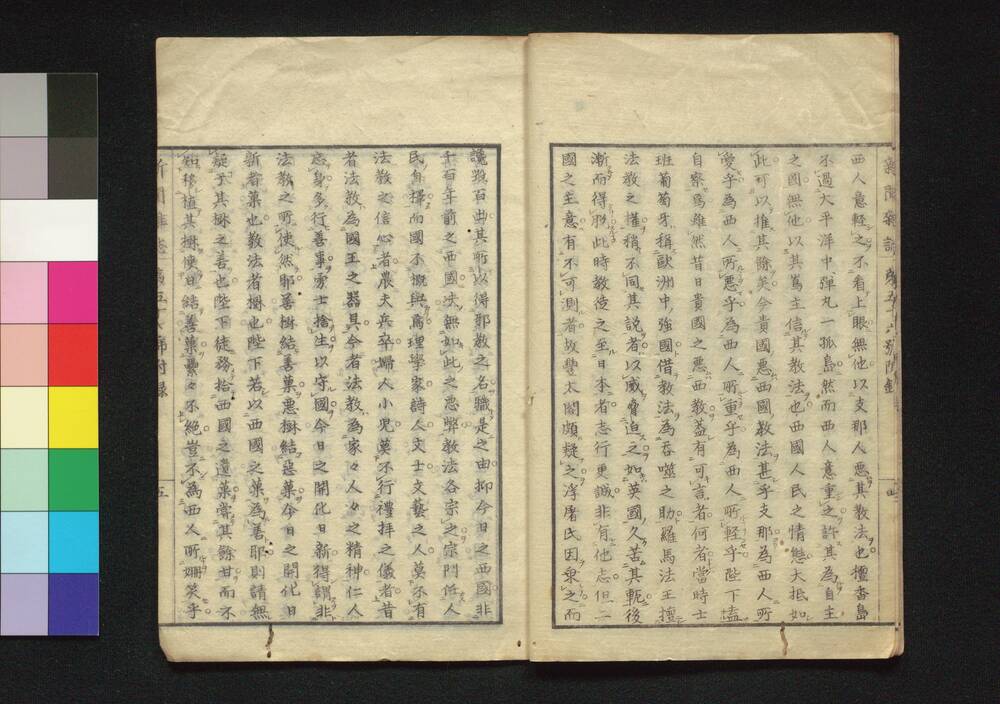 西人意輕之不看上眼無他以支那人惡其教法也檀香島
不過大平洋中彈丸一孤島然而西人意重之許其為自主
之國無他以其島主信其教法也西國人民之情戀大抵如
此可以推其餘矣今貴國惡西國教法甚乎支那為西人所
愛乎為西人所惡乎為西人所重乎為西人所軽乎陛下請
自察焉雖然昔日貴國之惡西教蓋有可言者何者當時士
班葡萄牙稱歐洲中強國借教法為吞噬之助羅馬法王擅
法教之權稍不同其說者以威脅迫之如英國久苦其軛後
漸而得脫此時教使之至日本者志行更誠非有他志但二
國之主意有不可測者故豐太閤頗疑之浮屠氏因衆之而
讒毀百曲其所以得邪教之名職是之由抑今日之西國非
千百年前之西國决無如此之惡弊教法各宗之宗門任人
民自擇而國不概與焉理學家詩人文士文藝之人莫不有
法教之信心者農夫兵卒婦人小兒莫不行禮拜之儀者昔
者法教為國王之器具今者法教為家々人々之精神仁人
忘身多行善事勇士捨生以守國今日之開化日新得謂非
法教之所使然耶善樹結善菓惡樹結惡菓今日之開化日
新者菓也教法者樹也陛下若以西國之菓為善耶則請無
疑于其樹之善也陛下徒務拾西國之遺菓嘗其餘甘而不
知移植其樹使日結善菓纍々不絕豈不為西人所姍笑乎
五